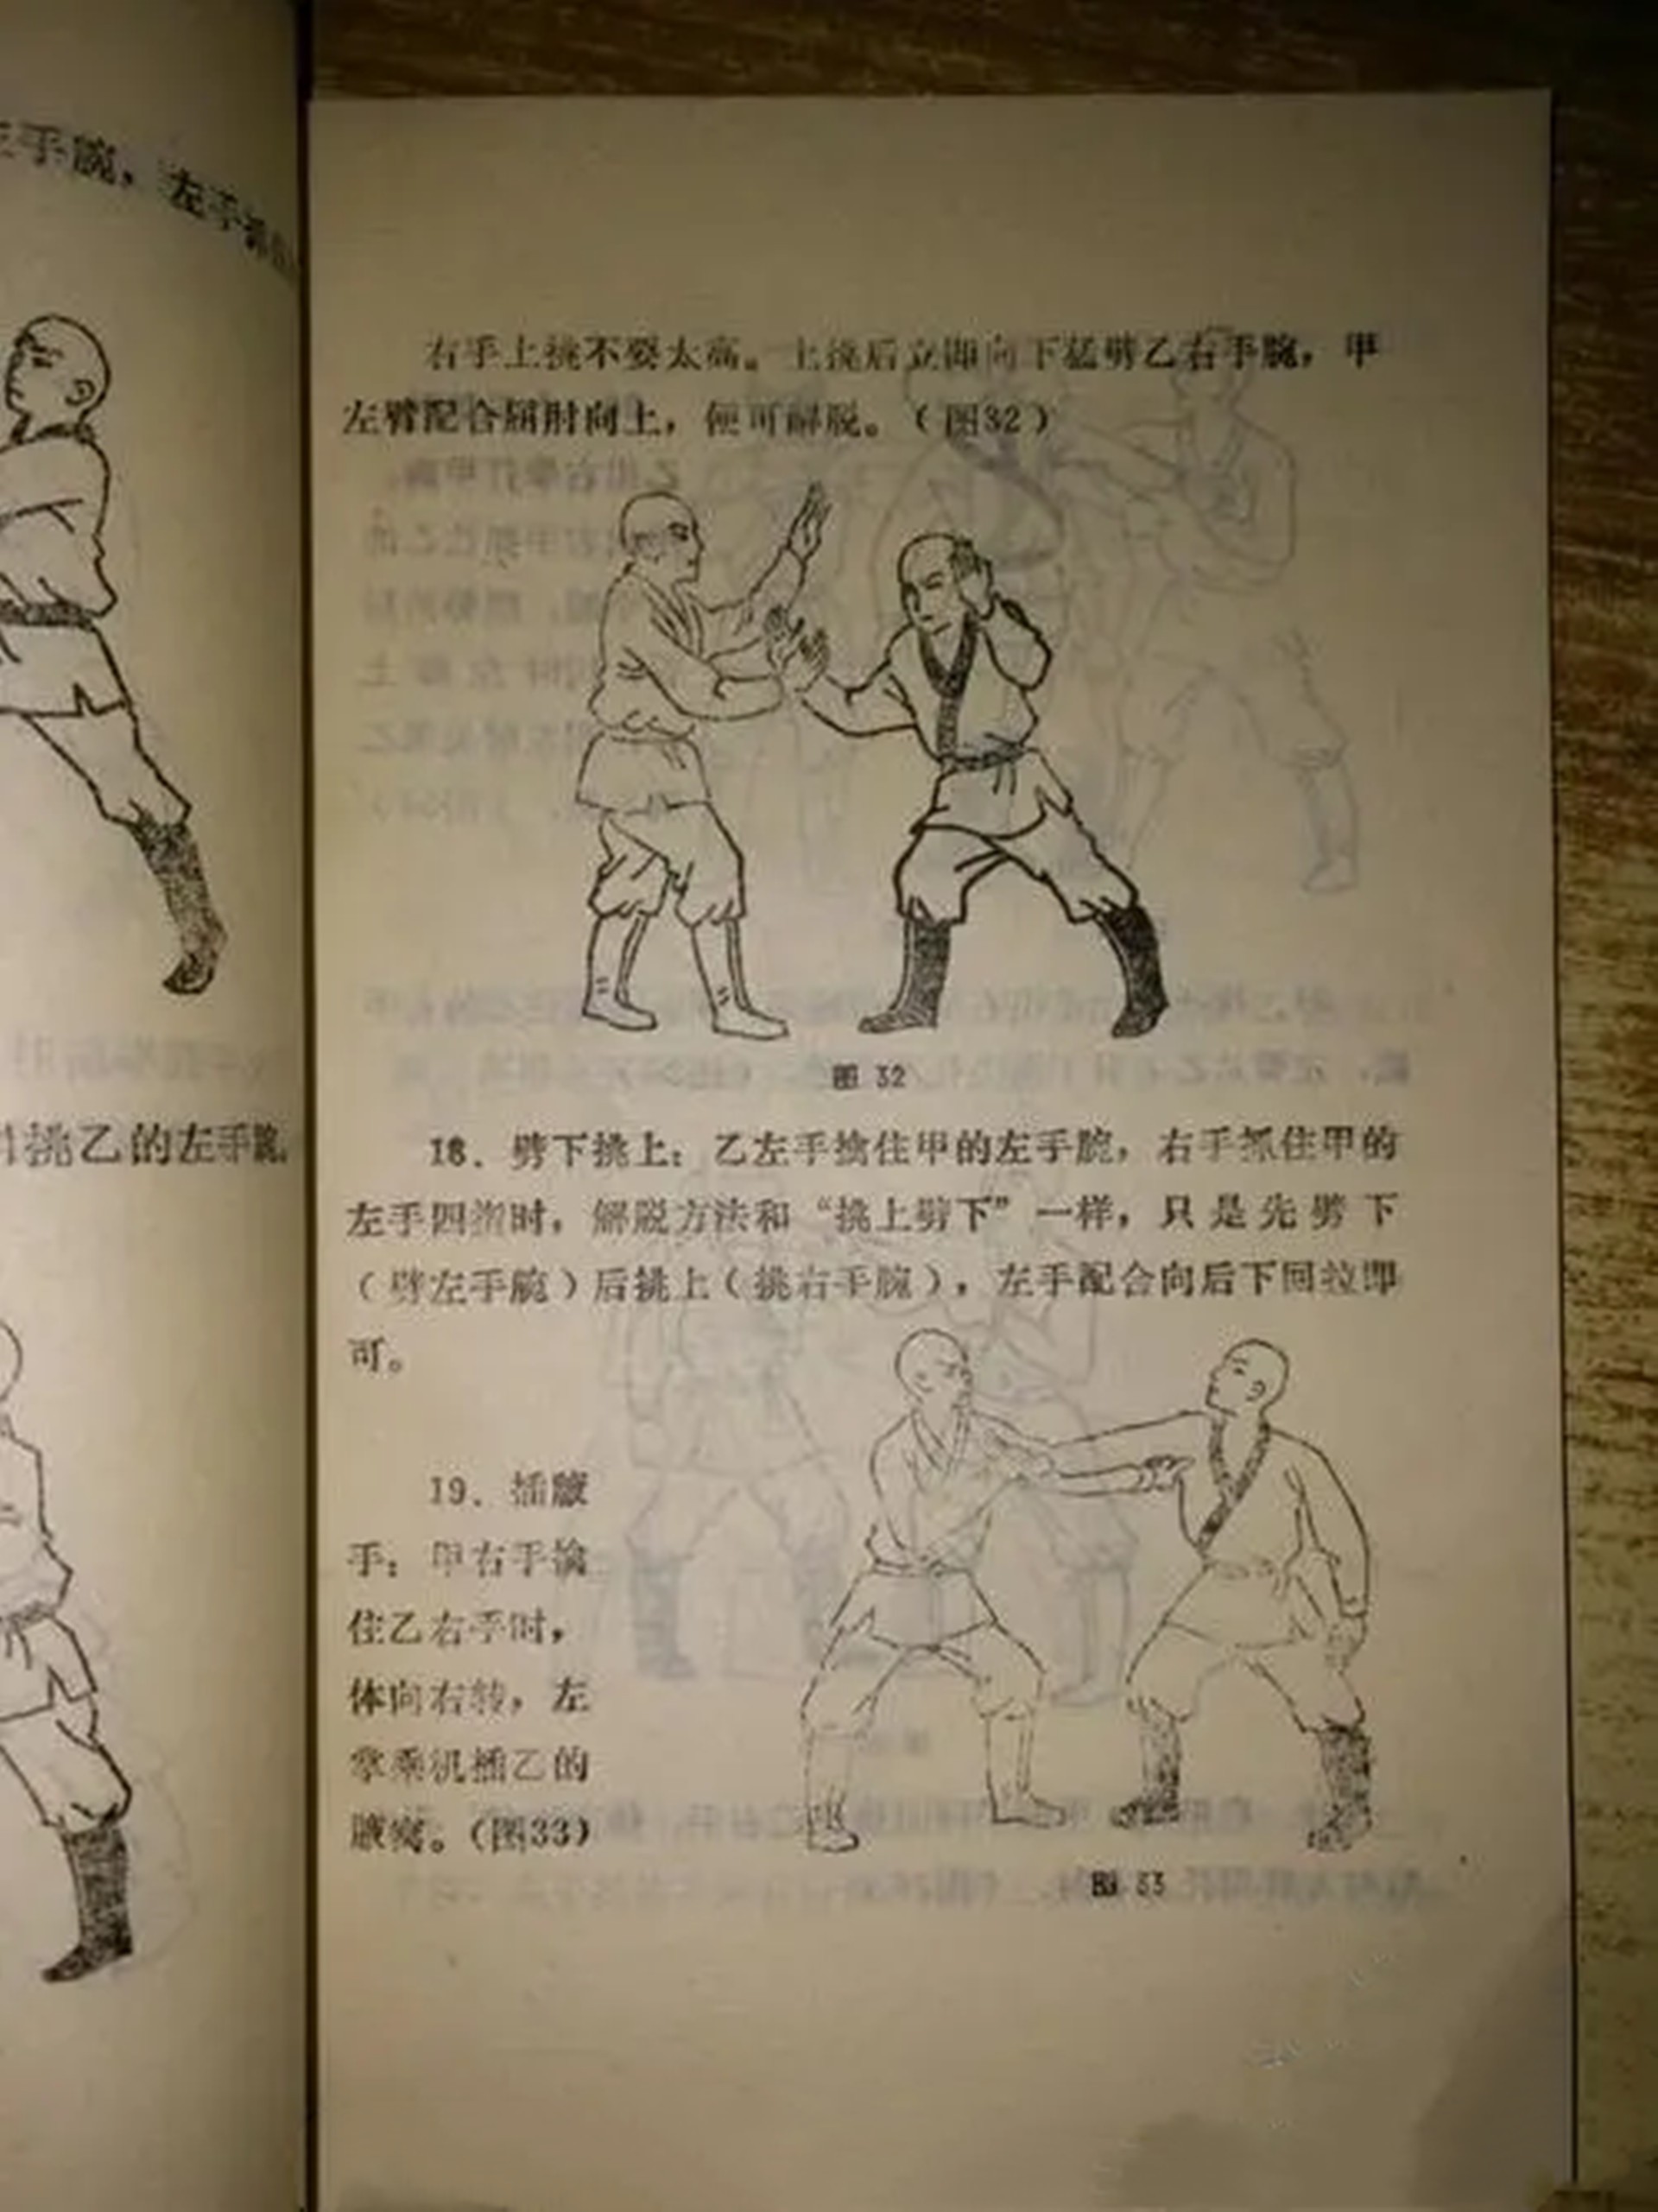 左手腕，左手抓
挑乙的左手腕，
右手上挑不要太高。上挑后立即向下猛劈乙右手腕，甲
左臂配合屈肘向上，便可解脱。（图32）
图 32
18．劈下挑上：乙左手擒住甲的左手腕，右手抓住甲的
左手四指时，解脱方法和“挑上劈下”一样，只是先劈下
（劈左手腕）后挑上（挑右手腕），左手配合向后下回拉即
可。
19．插腋
手：甲右手擒
住乙右手时，
体向右转，左
掌乘机插乙的
腋窝。（图33）
图 33